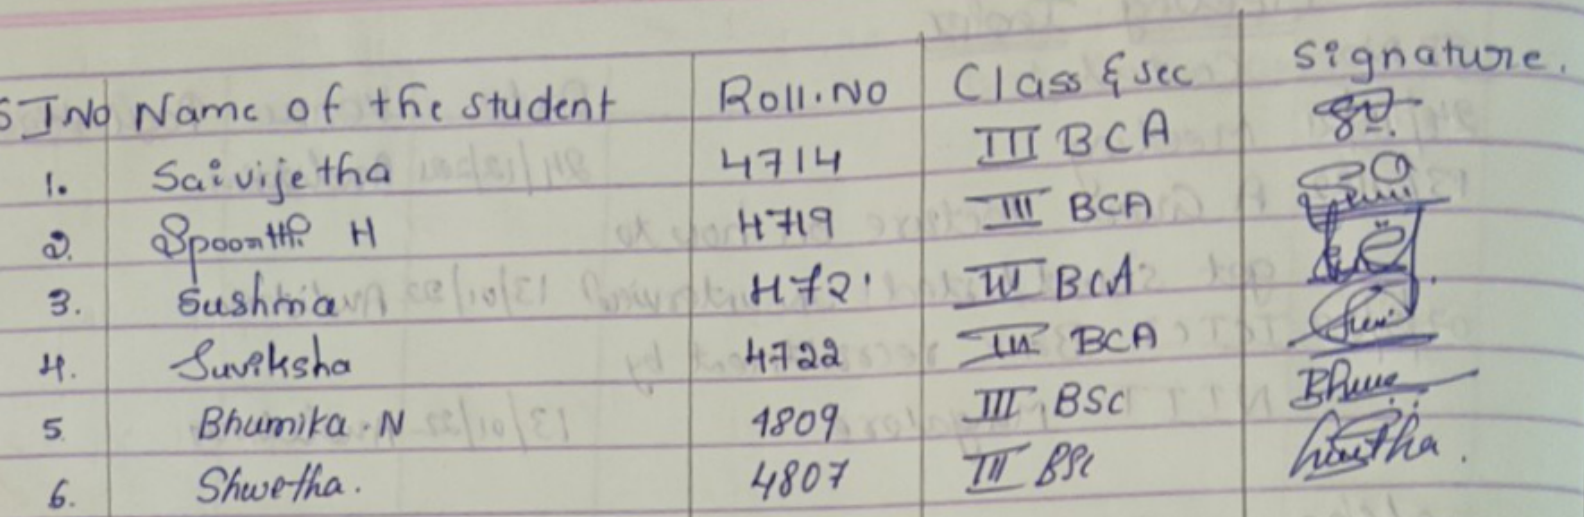 SI No Name of the student Roll.No Class & sec Signature.
1. Saivijetha 4714 III BCA
2. Spoorthi H 4719 III BCA
3. Sushma 4721 III BCA
4. Suviksha 4722 III BCA
5. Bhumika.N 4809 III BSC
6. Shwetha. 4807 III BSc